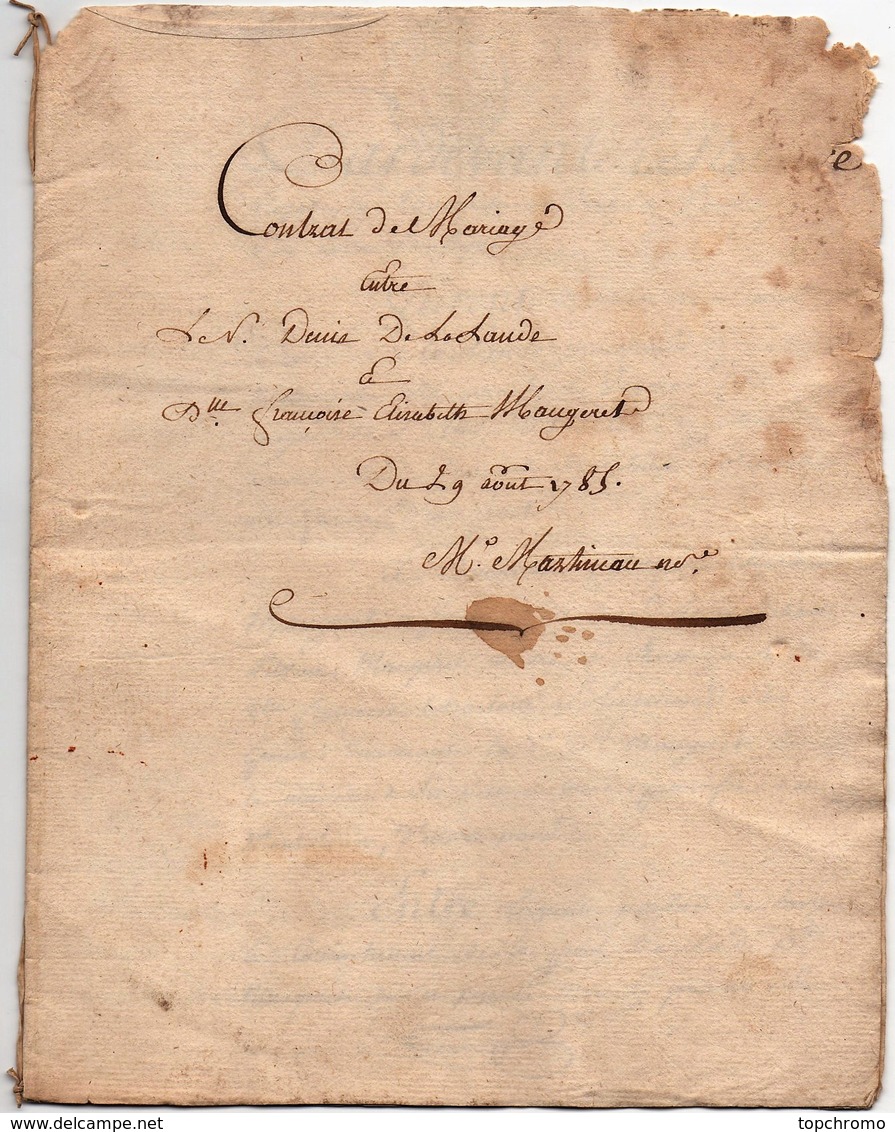 e
Contrat de Mariage
Entre
Le S. Denis De La Lande
Et
Dlle. françoise Elisabeth Maugeret
Du 29 août 1785.
Me. Martineau nore.
www.delcampe.net
topchromo